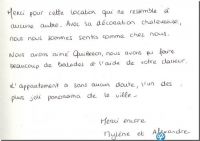 Merci pour cette location qui ne ressemble à
aucune autre. Avec sa décoration chaleureuse,
nous nous sommes sentis comme chez nous.
Nous avons aimé Quiberon, nous avons pu faire
beaucoup de balades à l'aide de votre classeur.
L'appartement a sans aucun doute, l'un des
plus joli panorama de la ville.
Merci encore
Mylène et Alexandre